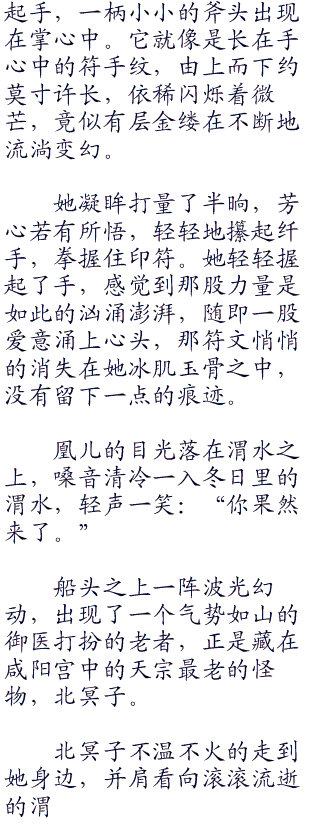 起手，一柄小小的斧头出现
在掌心中。它就像是长在手
心中的符手纹，由上而下约
莫寸许长，依稀闪烁着微
芒，竟似有层金缕在不断地
流淌变幻。
她凝眸打量了半晌，芳
心若有所悟，轻轻地攥起纤
手，拳握住印符。她轻轻握
起了手，感觉到那股力量是
如此的汹涌澎湃，随即一股
爱意涌上心头，那符文悄悄
的消失在她冰肌玉骨之中，
没有留下一点的痕迹。
凰儿的目光落在渭水之
上，嗓音清冷一入冬日里的
渭水，轻声一笑：“你果然
来了。”
船头之上一阵波光幻
动，出现了一个气势如山的
御医打扮的老者，正是藏在
咸阳宫中的天宗最老的怪
物，北冥子。
北冥子不温不火的走到
她身边，并肩看向滚滚流逝
的渭